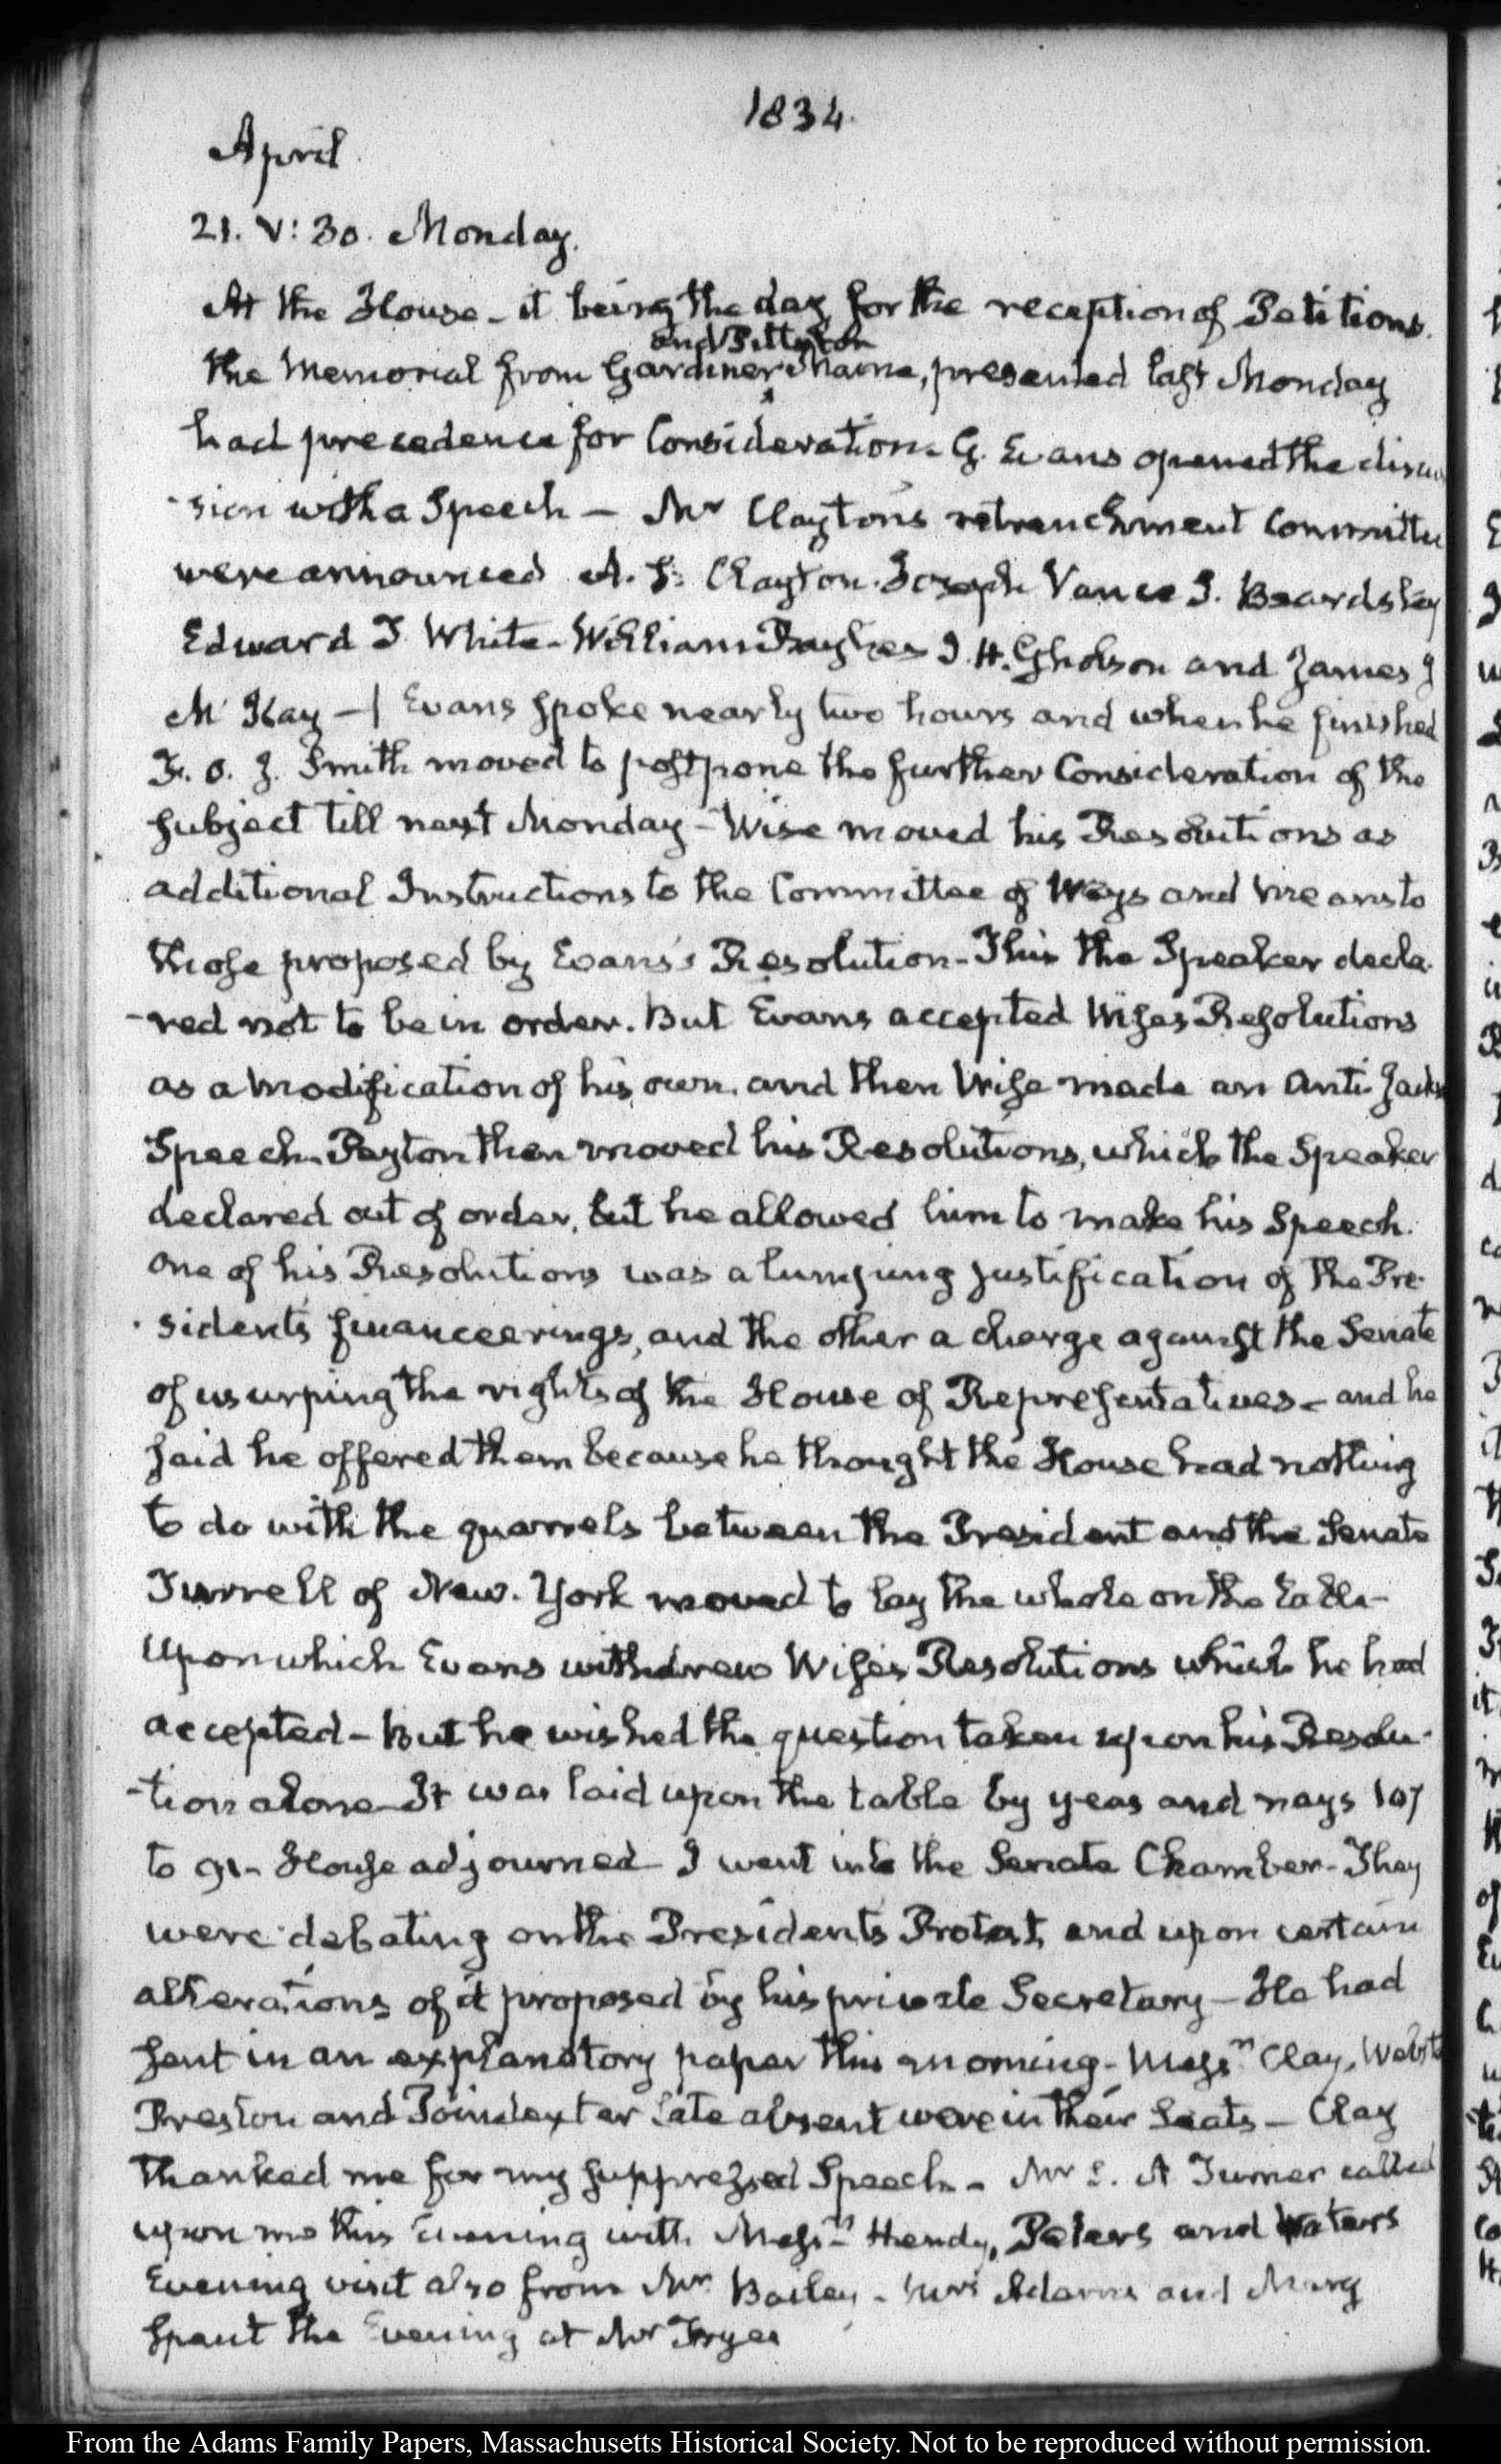 1834.
April.
21. V: 30. Monday.
At the House – it being the day for the reception of Petitions.
and Pittston
the Memorial from Gardiner Maine, presented last Monday
had precedence for Consideration. G. Evans opened the discus
-sion with a Speech – Mr Clayton's retrenchment Committee
were announced A. S. Clayton. Joseph Vance S. Beardsley
Edward D White – William J. H. Gholson and James J
McKay – | Evans spoke nearly two hours and when he finished
F. O. J. Smith moved to postpone the further Consideration of the
subject till next Monday – Wise moved his Resolutions as
additional Instructions to the Committee of Ways and Means to
those proposed by Evans's Resolution – This the Speaker decla
-red not to be in order. But Evans accepted Wise's Resolutions
as a modification of his own, and then Wise made an Anti-Jackson
Speech. Peyton then moved his Resolutions, which the Speaker
declared out of order, but he allowed him to make his Speech.
One of his Resolutions was a lumping justification of the Pre-
-sidents financeerings, and the other a charge against the Senate
of usurping the rights of the House of Representatives – and he
said he offered them because he thought the House had nothing
to do with the quarrels between the President and the Senate
Turrell of New-York moved to lay the whole on the table –
Upon which Evans withdrew Wise's Resolutions which he had
accepted – But he wished the question taken upon his Resolu-
-tion alone – It was laid upon the table by yeas and nays 107
to 91 – House adjourned – I went into the Senate Chamber – They
were debating on the Presidents Protest, and upon certain
alterations of it proposed by his private Secretary – He had
sent in an explanatory paper this morning – Messrs Clay, Webster
Preston and Poindexter late absent were in their Seats – Clay
thanked me for my suppressed Speech – Mr A Turner called
upon me this Evening with Messrs Hendy, Peters and Waters
Evening visit also from Mr Bailey – Mrs Adams and Mary
spent the Evening at Mr Frye's
From the Adams Family Papers, Massachusetts Historical Society. Not to be reproduced without permission.